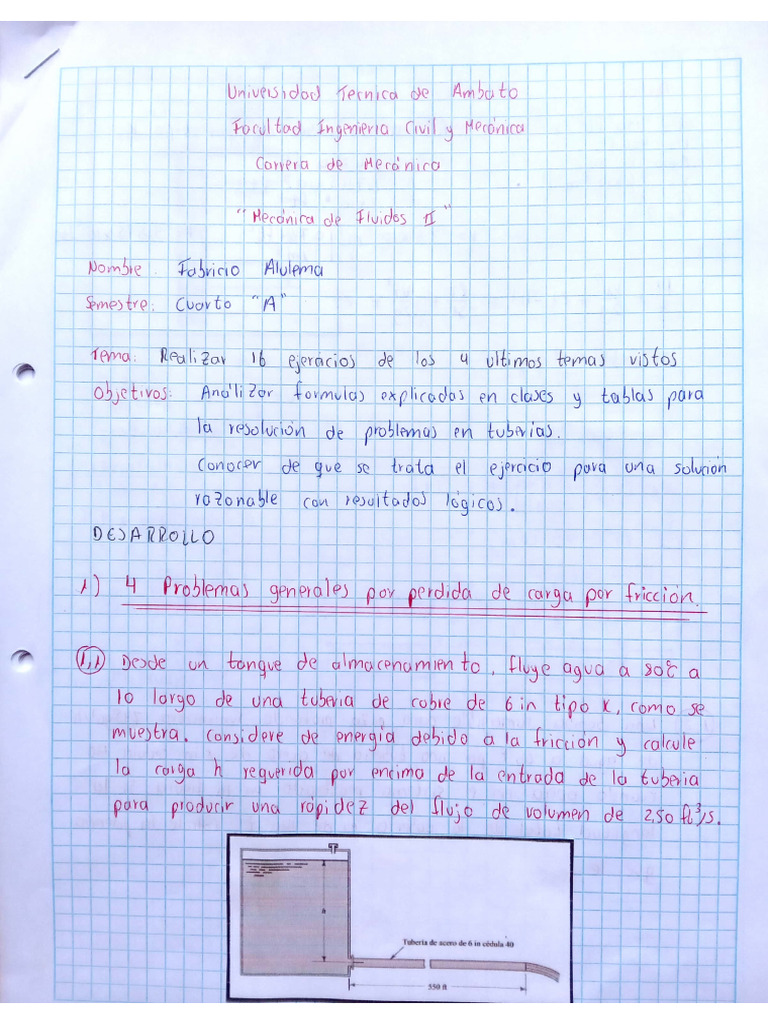 Universidad Tecnica de Ambato
Facultad Ingenieria Civil y Mecánica
Carrera de Mecánica
"Mecánica de Fluidos II"
Nombre: Fabricio Alulema
Semestre: Cuarto "A"
Tema: Realizar 16 ejercicios de los 4 ultimos temas vistos
Objetivos: Análizar formulas explicadas en clases y tablas para
la resolución de problemas en tuberias.
Conocer de que se trata el ejercicio para una solución
rozonable con resultados lógicos.
DESARROLLO
1) 4 Problemas generales por perdida de carga por fricción.
1,1 Desde un tanque de almacenamiento, fluye agua a 80°C a
lo largo de una tuberia de cobre de 6 in tipo K, como se
muestra. Considere de energía debido a la fricción y calcule
la carga h requerida por encima de la entrada de la tuberia
para producir una rápidez del flujo de volumen de 2,50 ft³/s.
h
Tubería de acero de 6 in cédula 40
550 ft